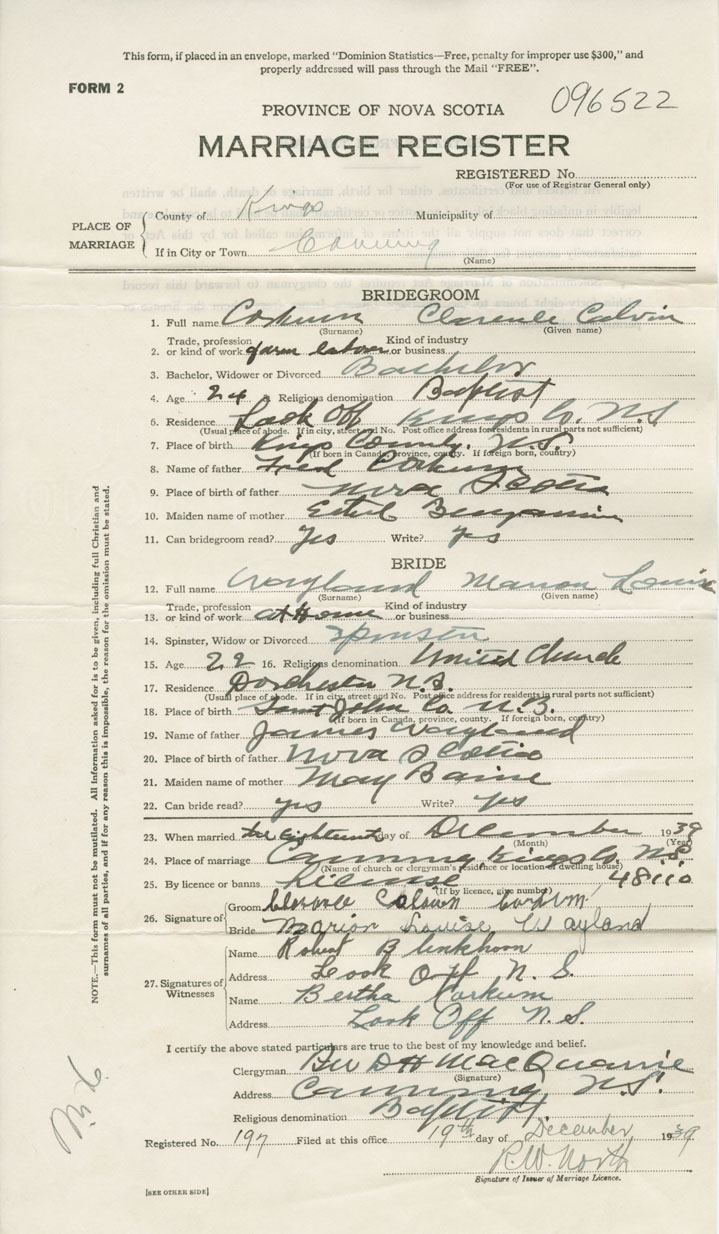 This form, if placed in an envelope, marked "Dominion Statistics—Free, penalty for improper use $300," and
properly addressed will pass through the Mail "FREE".
FORM 2
096522
PROVINCE OF NOVA SCOTIA
MARRIAGE REGISTER
REGISTERED No.
(For use of Registrar General only)
PLACE OF MARRIAGE
County of Kings Municipality of
If in City or Town Canning
(Name)
BRIDEGROOM
1. Full name Corkum Clarence Calvin
(Surname) (Given name)
Trade, profession Kind of industry
2. or kind of work farm labour or business
3. Bachelor, Widower or Divorced Bachelor
4. Age 24 Religious denomination Baptist
6. Residence Look Off Kings Co. N.S
(Usual place of abode. If in city, street and No. Post office address for residents in rural parts not sufficient)
7. Place of birth Kings County. N.S.
(If born in Canada, province, county. If foreign born, country)
8. Name of father Fred Corkum
9. Place of birth of father Nova Scotia
10. Maiden name of mother Ethel Benjamin
11. Can bridegroom read? Yes Write? Yes
BRIDE
12. Full name Wayland Marion Louise
(Surname) (Given name)
Trade, profession Kind of industry
13. or kind of work at Home or business
14. Spinster, Widow or Divorced Spinster
15. Age 22 16. Religious denomination United Church
17. Residence Dorchester N.B.
(Usual place of abode. If in city, street and No. Post office address for residents in rural parts not sufficient)
18. Place of birth Saint John Co. N.B.
(If born in Canada, province, county. If foreign born, country)
19. Name of father James Wayland
20. Place of birth of father Nova Scotia
21. Maiden name of mother May Baine
22. Can bride read? yes Write? yes
23. When married the Eighteenth day of December 1939
(Month) (Year)
24. Place of marriage Canning Kings Co. N.S.
(Name of church or clergyman's residence or location of dwelling house)
25. By licence or banns License 48110
(If by licence, give number)
26. Signature of
Groom Clarence Calvin Corkum
Bride Marion Louise Wayland
27. Signatures of Witnesses
Name Robert Blenkhorn
Address Look Off N. S.
Name Bertha Corkum
Address Look Off N.S.
I certify the above stated particulars are true to the best of my knowledge and belief.
Clergyman Rev D H MacQuarrie
(Signature)
Address Canning N.S.
Religious denomination Baptist.
Registered No. 197 Filed at this office 19th day of December 1939
R.W. North
Signature of Issuer of Marriage Licence.
[SEE OTHER SIDE]
NOTE.—This form must not be mutilated. All information asked for is to be given, including full Christian and
surnames of all parties, and if for any reason this is impossible, the reason for the omission must be stated.